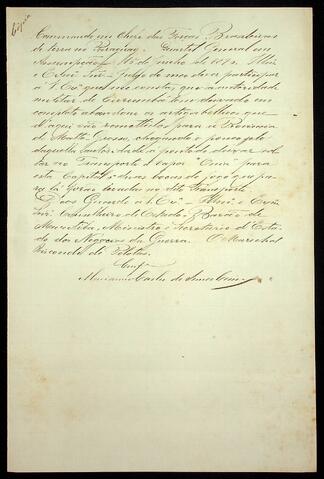 Cópia
Commando em Chefe das Forças Brasileiras
de terra no Paraguay. Quartel General em
Assumpção 15 de Junho de 1870. Illmo
e Exmo Snr. Julgo do meo dever participar
a V. Exª que me consta que a autoridade
militar de Corumbá tem deixado em
completo abandono os artigos bellicos que
d'aqui são remettidos para a Provincia
de Matto Grosso, chegando o pouco zelo
daquella autoridade a ponto de deixar vol
tar no Transporte a vapor para
esta Capital duas bocas de fogo que pa
ra lá forão levadas no dito Transporte
Deos Guarde a V. Exª Illmo e Exmo
Snr. Conselheiro de Estado, Barão de
Muritiba, Ministro e Secretario d'Esta
do dos Negocios da Guerra. O Marechal
Visconde de Pelotas.
Conf.
Marianno Carlos de